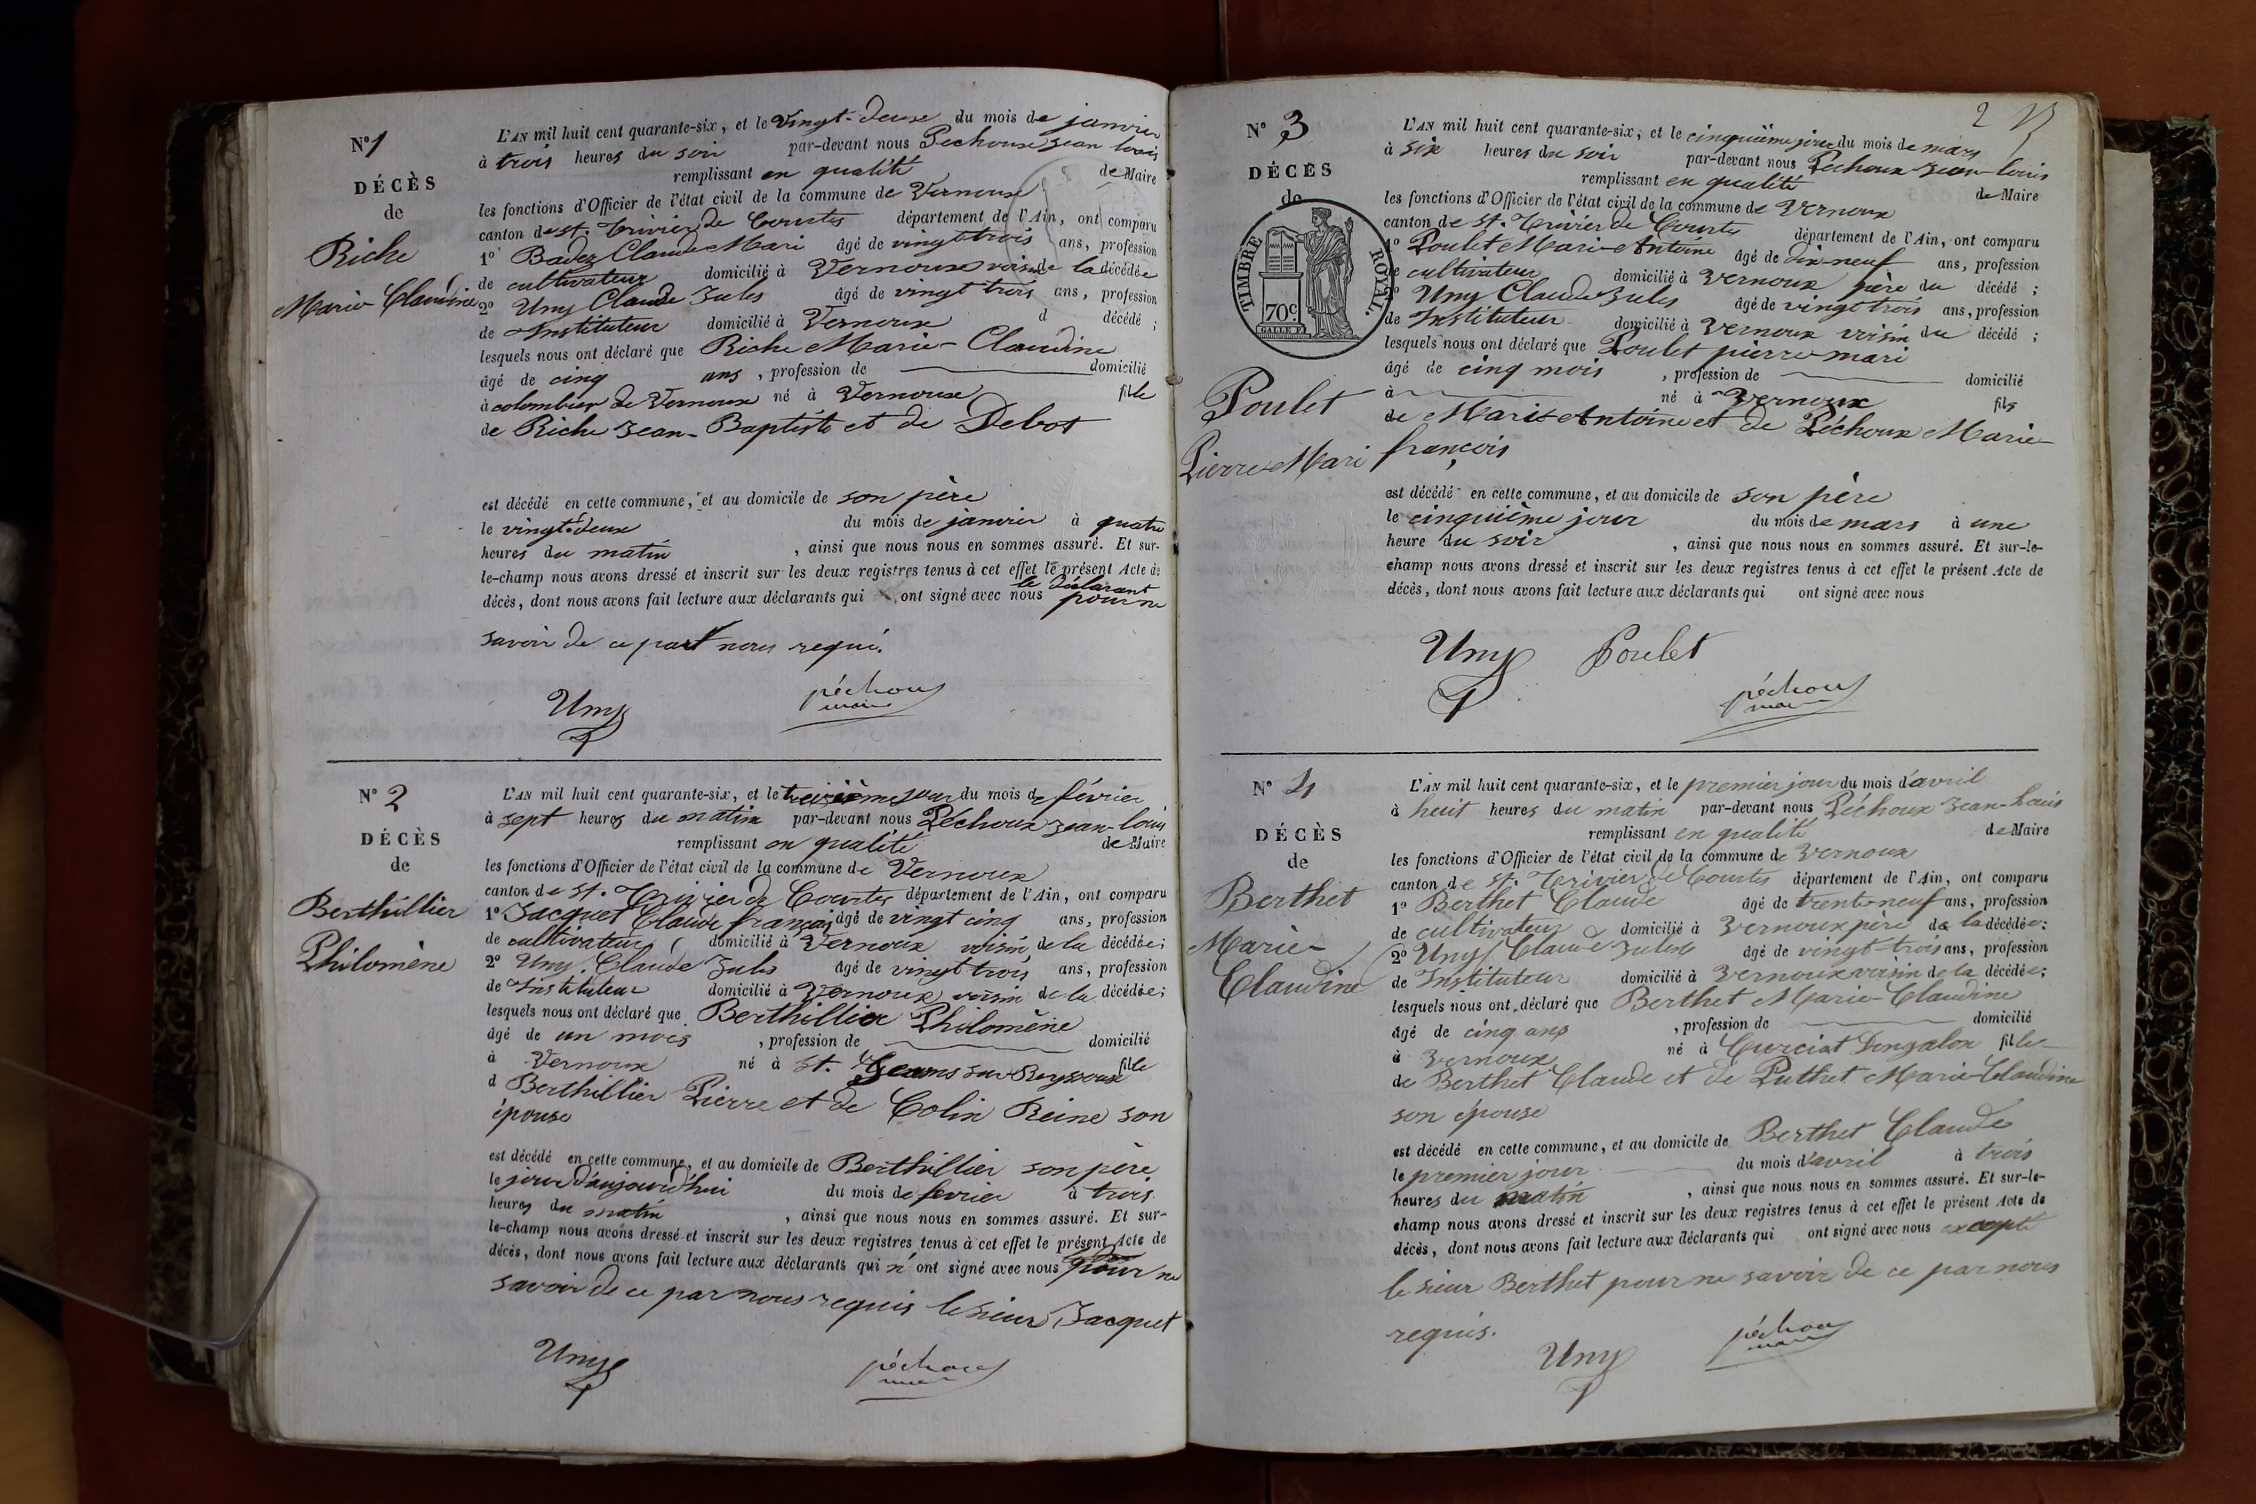 N° 1
DÉCÈS
de
Riche
Marie Claudine
L'AN mil huit cent quarante-six, et le vingt-deux du mois de janvier
à trois heures du soir par-devant nous Pechoux Jean Louis
remplissant en qualité de Maire
les fonctions d'Officier de l'état civil de la commune de Vernoux
canton de St. Trivier de Courtes département de l'Ain, ont comparu
1° Badez Claude Mari âgé de vingt trois ans, profession
de cultivateur domicilié à Vernoux voisin de la décédée
2° Uny Claude Jules âgé de vingt trois ans, profession
de Instituteur domicilié à Vernoux d décédé ;
lesquels nous ont déclaré que Riche Marie-Claudine
âgé de cinq ans, profession de domicilié
à colombier de Vernoux né à Vernoux fille
de Riche Jean-Baptiste et de Debot
est décédé en cette commune, et au domicile de son père
le vingt-deux du mois de janvier à quatre
heures du matin, ainsi que nous nous en sommes assuré. Et sur-
le-champ nous avons dressé et inscrit sur les deux registres tenus à cet effet le présent Acte de
le déclarant
décès, dont nous avons fait lecture aux déclarants qui ont signé avec nous pour ne
savoir de ce part nous requi.
Uny péchoux
maire
N° 2
DÉCÈS
de
Berthillier
Philomène
L'AN mil huit cent quarante-six, et le treizième jour du mois de février
à sept heures du matin par-devant nous Péchoux Jean-Louis
remplissant en qualité de Maire
les fonctions d'Officier de l'état civil de la commune de Vernoux
canton de St. Trivier de Courtes département de l'Ain, ont comparu
1° Jacquet Claude françois âgé de vingt cinq ans, profession
de cultivateur domicilié à Vernoux voisin de la décédée;
2° Uny Claude Jules âgé de vingt trois ans, profession
de Instituteur domicilié à Vernoux voisin de la décédée;
lesquels nous ont déclaré que Berthillier Philomène
âgé de un mois, profession de domicilié
à Vernoux né à St. Jean sur Reyssouze fille
d Berthillier Pierre et de Colin Reine son
épouse
est décédé en cette commune, et au domicile de Berthillier son père
le jour d'aujourd'hui du mois de fevrier à trois
heures du matin, ainsi que nous nous en sommes assuré. Et sur-
le-champ nous avons dressé et inscrit sur les deux registres tenus à cet effet le présent Acte de
décès, dont nous avons fait lecture aux déclarants qui n' ont signé avec nous pour ne
savoir de ce par nous requis le sieur Jacquet
Uny péchoux
maire
2
N° 3
DÉCÈS
de
TIMBRE ROYAL.
70c
Poulet
Pierre Mari
L'AN mil huit cent quarante-six, et le cinquième jour du mois de mars
à six heures du soir par-devant nous Péchoux Jean-Louis
remplissant en qualité de Maire
les fonctions d'Officier de l'état civil de la commune de Vernoux
canton de St. Trivier de Courtes département de l'Ain, ont comparu
1° Poulet Mari-Antoine âgé de dix-neuf ans, profession
de cultivateur domicilié à Vernoux père du décédé ;
2° Uny Claude Jules âgé de vingt trois ans, profession
de Instituteur domicilié à Vernoux voisin du décédé ;
lesquels nous ont déclaré que Poulet pierre mari
âgé de cinq mois, profession de domicilié
à né à Vernoux fils
de Mari-Antoine et de Péchoux Marie-
françois
est décédé en cette commune, et au domicile de son père
le cinquième jour du mois de mars à une
heure du soir, ainsi que nous nous en sommes assuré. Et sur-le-
champ nous avons dressé et inscrit sur les deux registres tenus à cet effet le présent Acte de
décès, dont nous avons fait lecture aux déclarants qui ont signé avec nous
Uny Poulet
péchoux
maire
N° 4
DÉCÈS
de
Berthet
Marie-
Claudine
L'AN mil huit cent quarante-six, et le premier jour du mois d'avril
à heuit heures du matin par-devant nous Péchoux Jean-Louis
remplissant en qualité de Maire
les fonctions d'Officier de l'état civil de la commune de Vernoux
canton de St. Trivier de Courtes département de l'Ain, ont comparu
1° Berthet Claude âgé de trente-neuf ans, profession
de cultivateur domicilié à Vernoux père de la décédée;
2° Uny Claude Jules âgé de vingt-trois ans, profession
de Instituteur domicilié à Vernoux voisin de la décédée;
lesquels nous ont déclaré que Berthet Marie-Claudine
âgé de cinq ans, profession de domicilié
à Vernoux né à Curciat Dongalon fille
de Berthet Claude et de Puthet Marie-Claudine
son épouse
est décédé en cette commune, et au domicile de Berthet Claude
le premier jour du mois d'avril à trois
heures du matin, ainsi que nous nous en sommes assuré. Et sur-le-
champ nous avons dressé et inscrit sur les deux registres tenus à cet effet le présent Acte de
décès, dont nous avons fait lecture aux déclarants qui ont signé avec nous excepté
le sieur Berthet pour ne savoir de ce par nous
requis.
Uny péchoux
maire